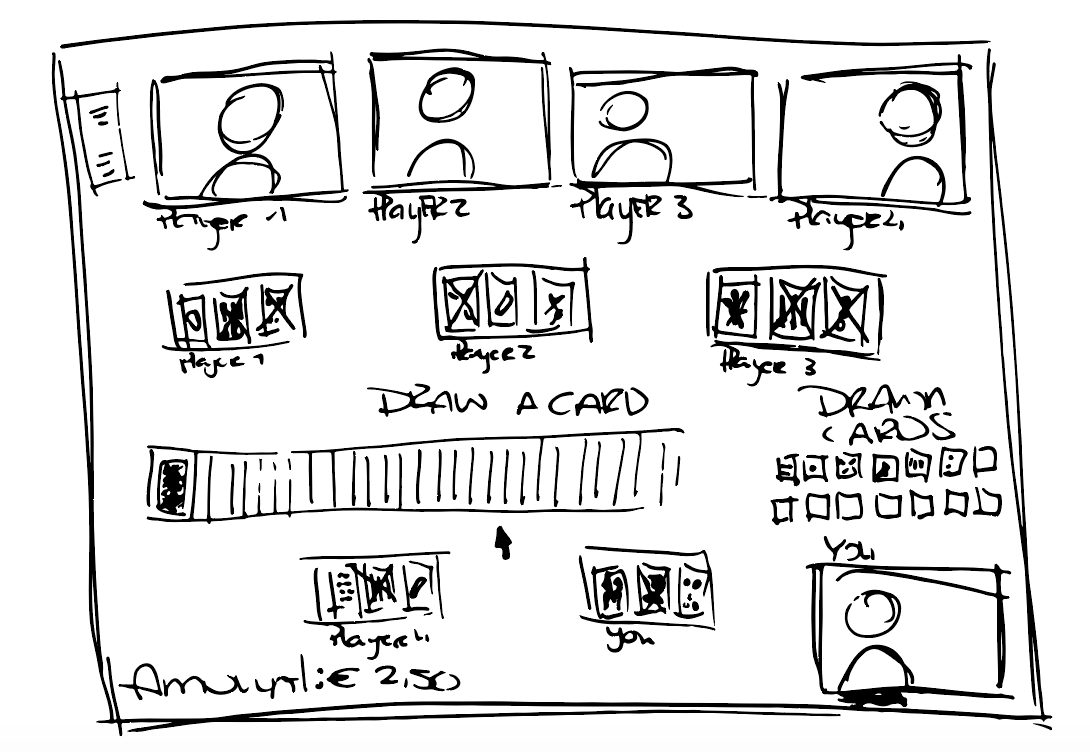 Player 1
Player 2
Player 3
Player 4
Player 1
Player 2
Player 3
DRAW A CARD
DRAWN
CARDS
You
Player 4
You
€ 2,50